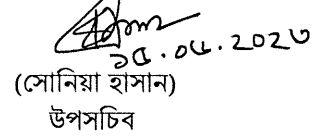 ১৫.০৫.২০২৩
(সোনিয়া হাসান)
উপসচিব